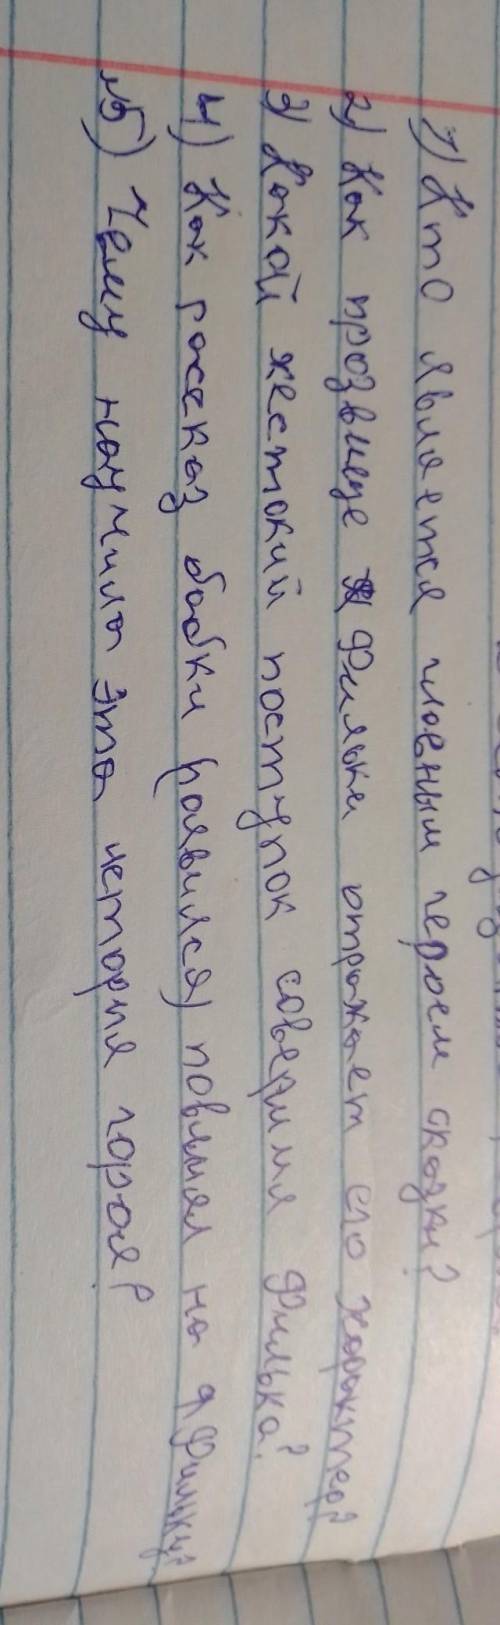 1) Кто является главным героем сказки?
2) Как прозвище Фильки отражает его характер?
3) Какой жестокий поступок совершил Филька?
4) Как рассказ бабки (оявился) повлиял на Фильку?
№5) Чему научила эта история героя?